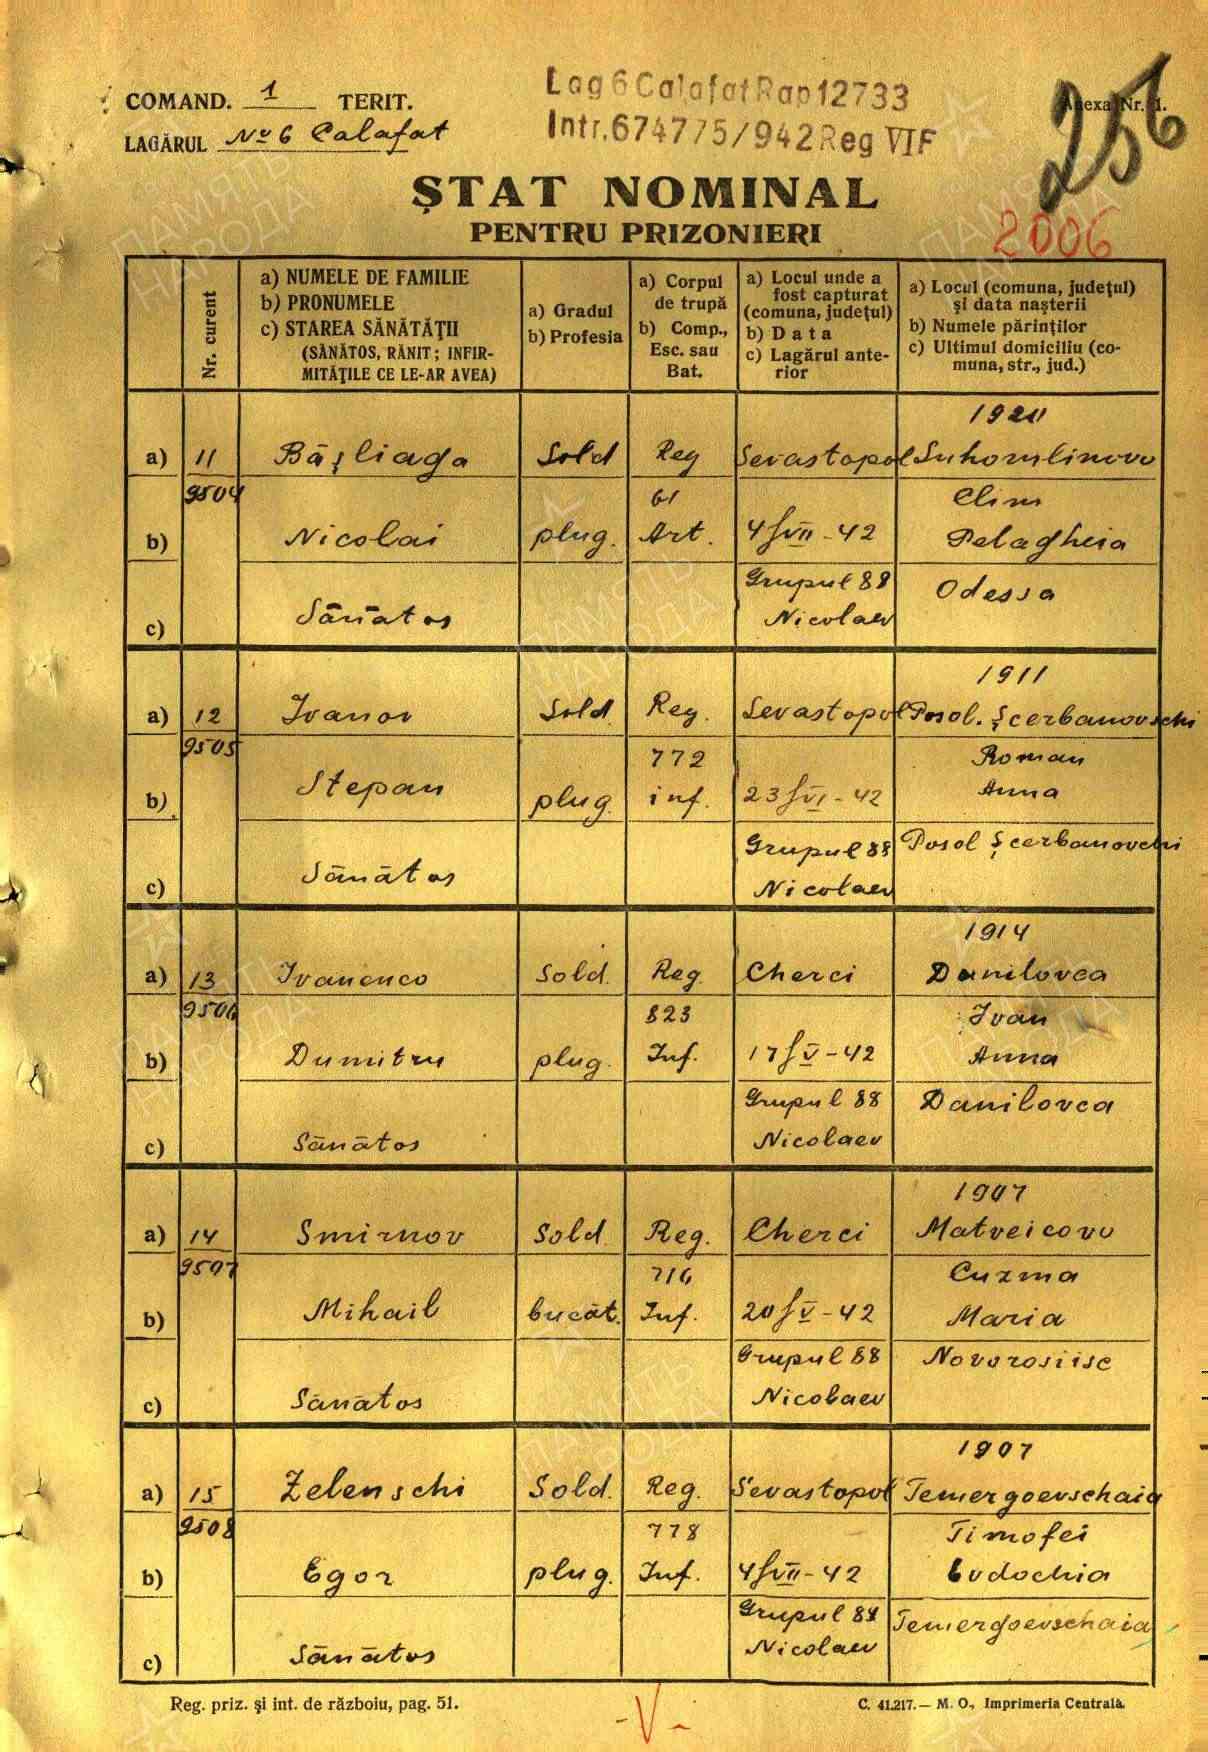 COMAND. 1 TERIT.
LAGĂRUL No 6 Calafat
Lag 6 Calafat Rap 12733
Intr. 674775/942 Reg VIF
Anexa Nr. 1.
256
2006
ȘTAT NOMINAL
PENTRU PRIZONIERI
Nr. curent
a) NUMELE DE FAMILIE
b) PRONUMELE
c) STAREA SĂNĂTĂȚII
(SĂNĂTOS, RĂNIT; INFIR-
MITĂȚILE CE LE-AR AVEA)
a) Gradul
b) Profesia
a) Corpul
de trupă
b) Comp.,
Esc. sau
Bat.
a) Locul unde a
fost capturat
(comuna, județul)
b) Data
c) Lagărul ante-
rior
a) Locul (comuna, județul)
și data nașterii
b) Numele părinților
c) Ultimul domiciliu (co-
muna, str., jud.)
1920
a) 11 Bășliaga Sold Reg Sevastopol Suhomlinovo
9504 61 Clim
b) Nicolai plug. Art. 4/VII-42 Pelagheia
Grupul 88 Odessa
c) Sănătos Nicolaev
1911
a) 12 Ivanov Sold. Reg. Sevastopol Posol. Șcerbanovschi
9505 772 Roman
b) Stepan plug. inf. 23/VI-42 Anna
Grupul 88 Posol Șcerbanovchi
c) Sănătos Nicolaev
1914
a) 13 Ivanenco Sold. Reg. Cherci Danilovca
9506 823 Ivan
b) Dumitru plug. Inf. 17/V-42 Anna
Grupul 88 Danilovca
c) Sănătos Nicolaev
1907
a) 14 Smirnov Sold. Reg. Cherci Matveicovo
9507 716 Cuzma
b) Mihail bucăt. Inf. 20/V-42 Maria
Grupul 88 Novorosiisc
c) Sănătos Nicolaev
1907
a) 15 Zelenschi Sold. Reg. Sevastopol Temergoevschaia
9508 778 Timofei
b) Egor plug. Inf. 4/VII-42 Evdochia
Grupul 88 Temergoevschaia
c) Sănătos Nicolaev
Reg. priz. și int. de războiu, pag. 51.
-V-
C. 41.217.— M. O., Imprimeria Centrală.
ПАМЯТЬ
НАРОДА